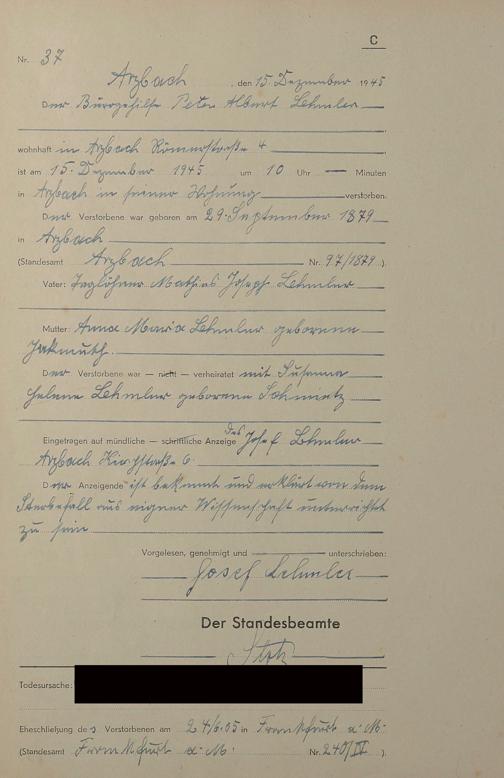 C
Nr. 37
Arzbach, den 15. Dezember 1945
Der Bürogehilfe Peter Albert Lehmler
wohnhaft in Arzbach Römerstraße 4
ist am 15. Dezember 1945 um 10 Uhr — Minuten
in Arzbach in seiner Wohnung verstorben.
Der Verstorbene war geboren am 29. September 1879
in Arzbach
(Standesamt Arzbach Nr. 97/1879).
Vater: Taglöhner Mathias Joseph Lehmler
Mutter: Anna Maria Lehmler geborene
Jakmuth.
Der Verstorbene war — nicht — verheiratet mit Susanna
Helene Lehmler geborene Schmietz
Eingetragen auf mündliche — schriftliche Anzeige des Josef Lehmler
Arzbach Kirchstraße 6
Der Anzeigende ist bekannt und erklärt von dem
Sterbefall aus eigner Wissenschaft unterrichtet
zu sein
Vorgelesen, genehmigt und unterschrieben:
Josef Lehmler
Der Standesbeamte
Todesursache:
Eheschließung des Verstorbenen am 24/6.05 in Frankfurt a. M.
(Standesamt Frankfurt a. M. Nr. 240/IV).